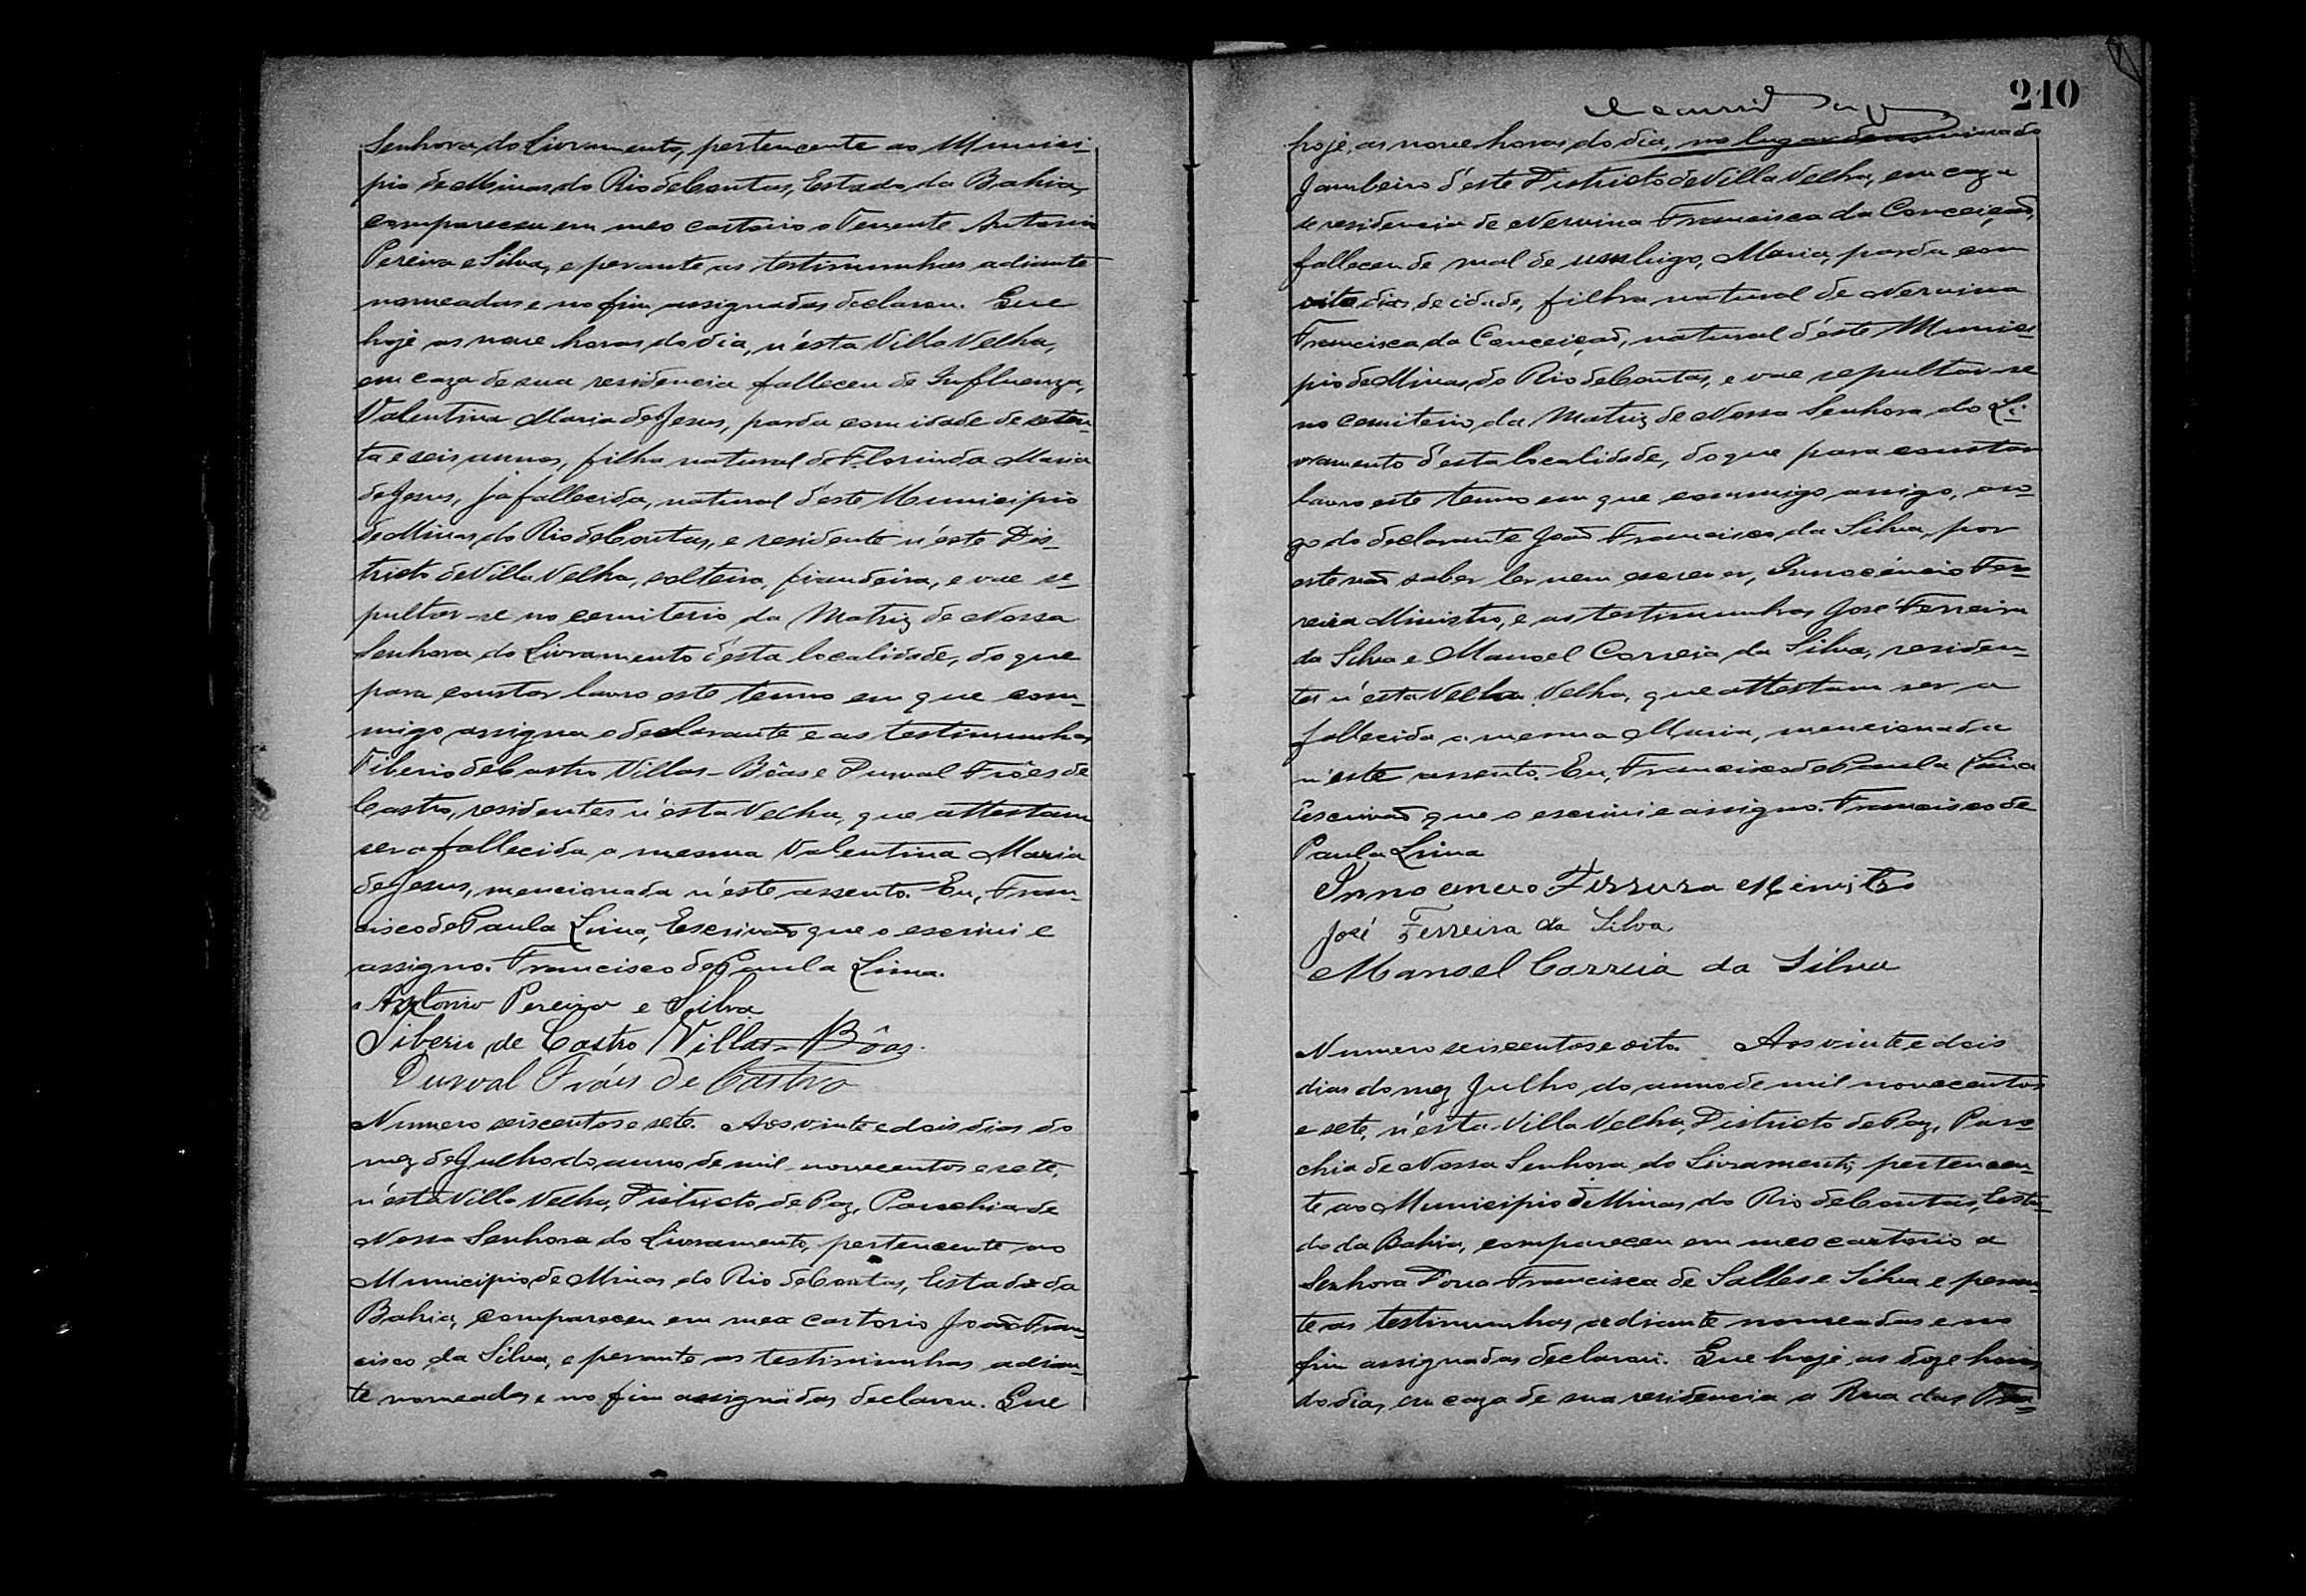 Senhora do Livramento, pertencente ao Munici-
pio de Minas do Rio de Contas, Estado da Bahia,
compareceu em meo cartorio o Tenente Antonio
Pereira e Silva, e perante as testimunhas adiante
nomeadas e no fim assignadas declarou. Que
hoje as nove horas do dia, n'esta Villa Velha,
em caza de sua residencia falleceu de Influenza,
Valentina Maria de Jesus, parda com idade de seten-
ta e seis annos, filha natural de Florinda Maria
de Jesus, já fallecida, natural d'este Municipio
de Minas do Rio de Contas, e residente n'este Dis-
tricto de Villa Velha, solteira, fiandeira, e vae se-
pultar-se no cemiterio da Matriz de Nossa
Senhora do Livramento d'esta localidade, do que
para constar lavro este termo em que com-
migo assigna o declarante e as testimunhas
Tiberio de Castro Villas-Bôas e Durval Frôes de
Castro, residentes n'esta Velha, que attestam
ser a fallecida a mesma Valentina Maria
de Jesus, mencionada n'este assento. Eu, Fran-
cisco de Paula Lima, Escrivaõ que o escrivi e
assigno. Francisco de Paula Lima.
Antonio Pereira e Silva
Tiberio de Castro Villas-Bôas.
Durval Fróes de Castro
Numero seiscentos e sete. Aos vinte e dois dias do
mez de Julho do anno de mil novecentos e sete,
n'esta Villa Velha, Districto de Paz, Parochia de
Nossa Senhora do Livramento, pertencente ao
Municipio de Minas do Rio de Contas, Estado da
Bahia, compareceu em meo cartorio Joaõ Fran-
cisco da Silva, e perante as testimunhas adian-
te nomeadas e no fim assignadas declarou. Que
210
hoje, as nove horas do dia, no lugar denominado
Jambeiro d'este Districto de Villa Velha, em caza
de residencia de Nervina Francisca da Conceiçaõ,
falleceu de mal de umbigo, Maria, parda com
oito dias de idade, filha natural de Nervina
Francisca da Conceiçaõ, natural d'este Munici-
pio de Minas do Rio de Contas, e vae sepultar-se
no cemiterio da Matriz de Nossa Senhora do Li-
vramento d'esta localidade, do que para constar
lavro este termo em que commigo assigna, a ro-
go do declarante Joaõ Francisco da Silva, por
este naõ saber ler nem escrever, Innocencio Fer-
reira Ministro, e as testimunhas José Ferreira
da Silva e Manoel Correia da Silva, residen-
tes n'esta Velha Velha, que attestam ser a
fallecida a mesma Maria, mencionada
n'este assento. Eu, Francisco de Paula Lima
Escrivaõ que o escrivi e assigno. Francisco de
Paula Lima
Innocencio Ferrera Ministro
José Ferreira da Silva
Manoel Correia da Silva
Numero seiscentos e oito. Aos vinte e dois
dias do mez Julho do anno de mil novecentos
e sete, n'esta Villa Velha, Districto de Paz, Paro-
chia de Nossa Senhora do Livramento, pertencen-
te ao Municipio de Minas do Rio de Contas, Esta-
do da Bahia, compareceu em meo cartorio a
Senhora Dona Francisca de Salles e Silva e peran-
te as testimunhas adiante nomeadas e no
fim assignadas declarou. Que hoje, as doze horas
do dia, em caza de sua residencia a Rua das